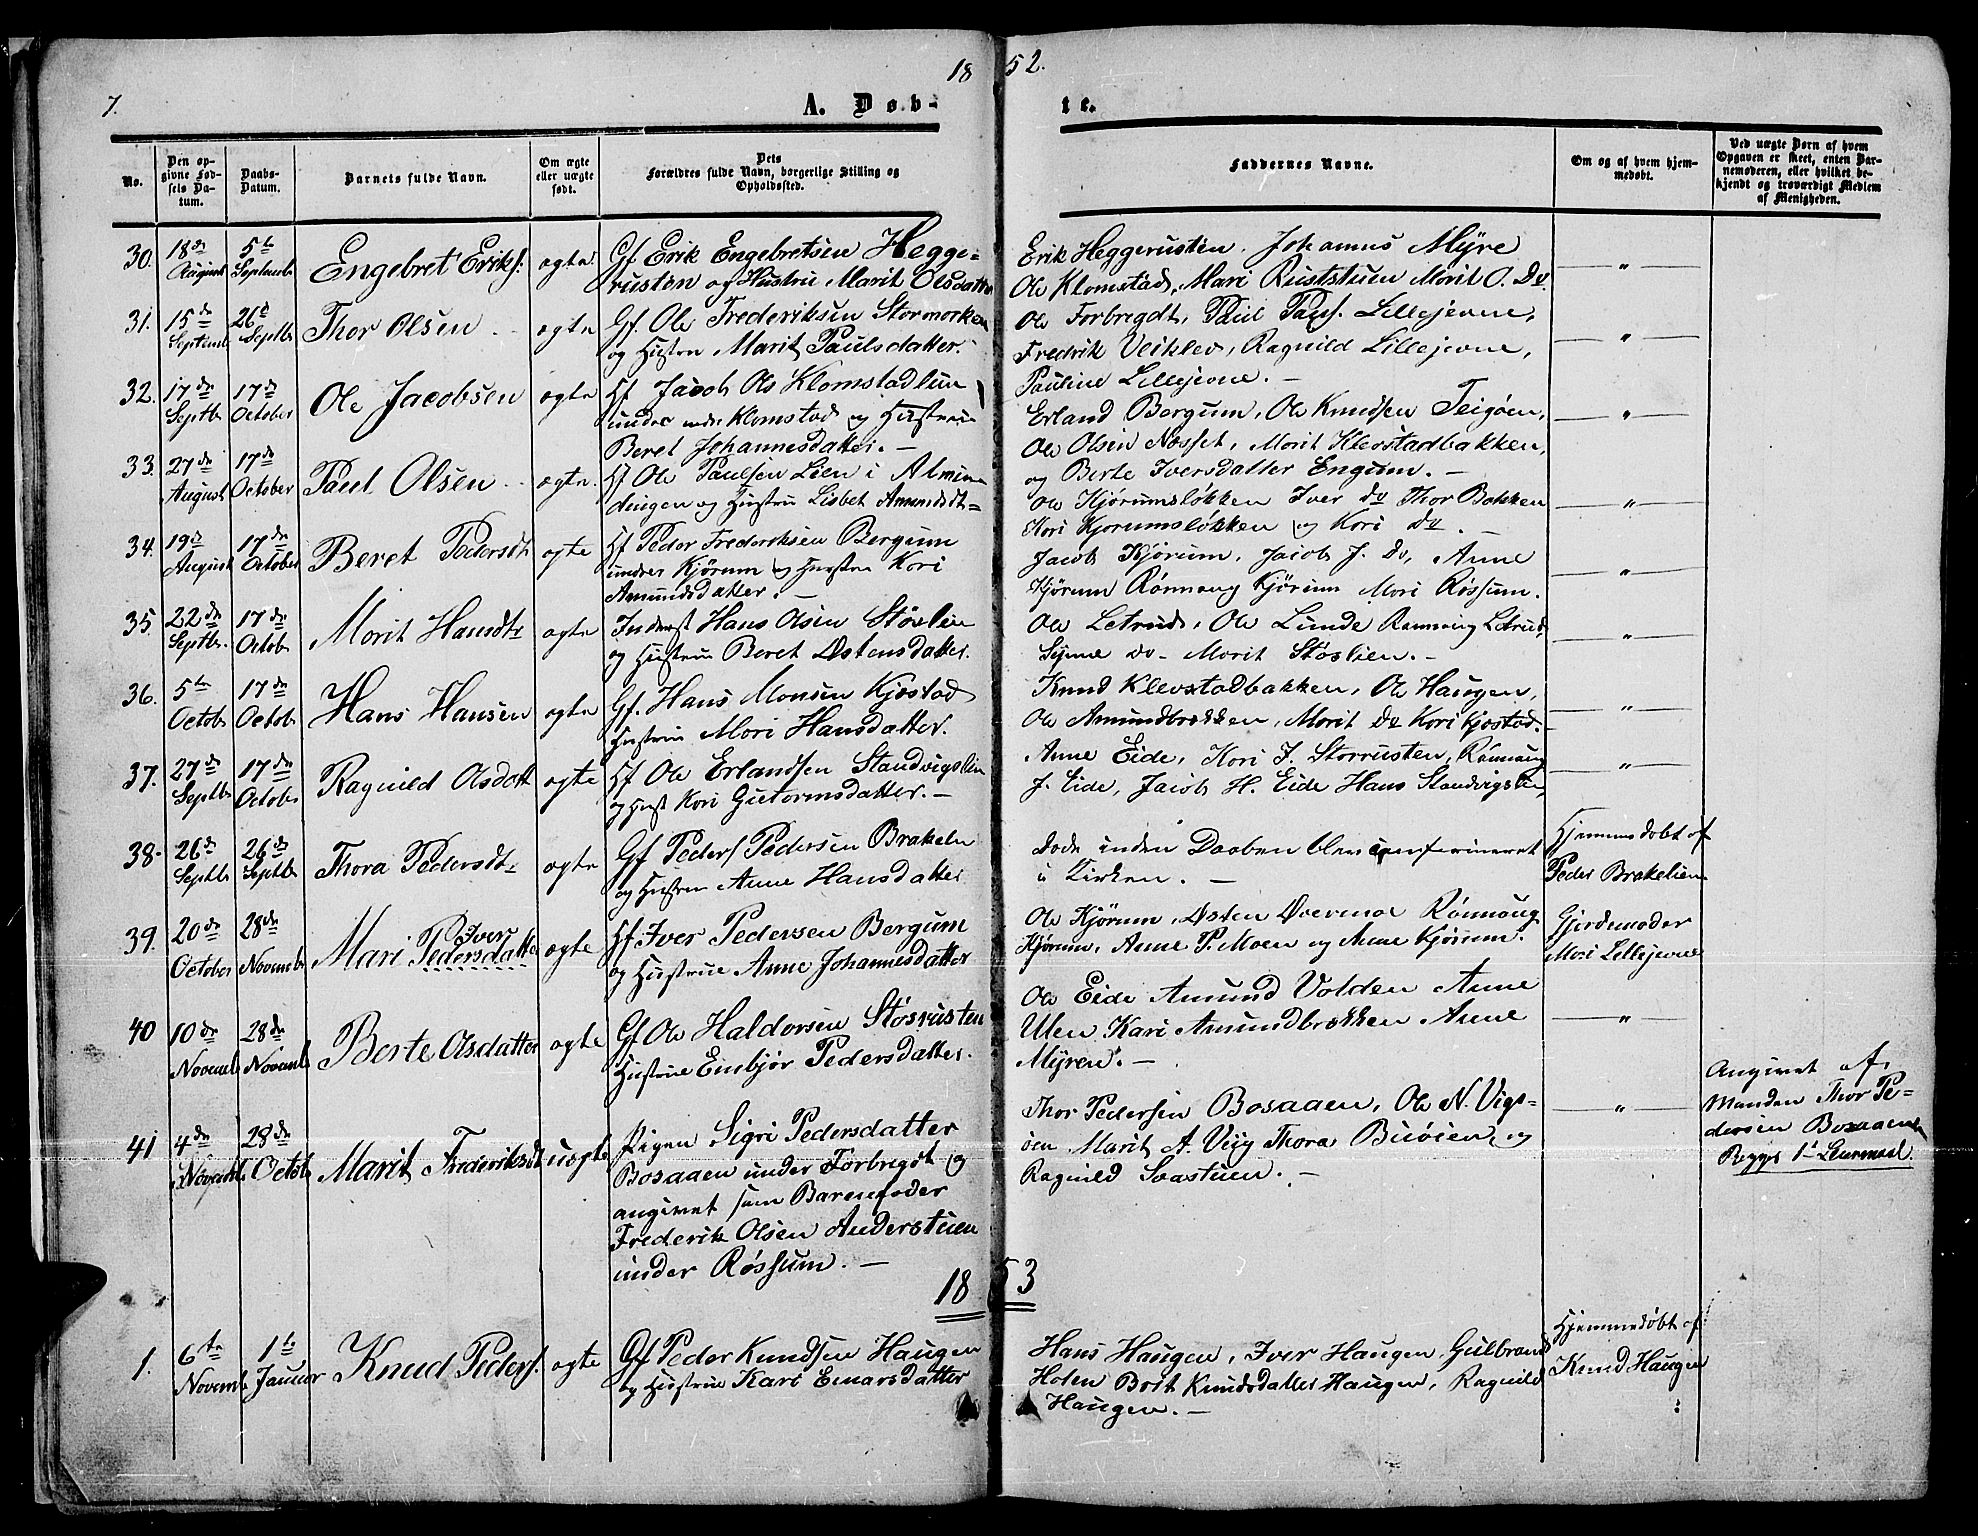 7.
1852.
A. Døbte.
No.
Den opgivne Fødsels Datum.
Daabs-Datum.
Barnets fulde Navn.
Om ægte eller uægte født.
Dets Forældres fulde Navn, borgerlige Stilling og Opholdssted.
Faddernes Navne.
Om og af hvem hjemmedøbt.
Ved uægte Børn af hvem Opgaven er skeet, enten Barnemoderen, eller hvilket bekjendt og troværdigt Medlem af Menigheden.
30. 18de August 5te Septembr Engebret Eriks. ægte
Gf Erik Engebretsen Hegge-
rusten og Hustru Marit Olsdatter
Erik Heggerusten. Johannes Myre
Ole Klomstad, Mari Ruststuen Morit O. Do.
— " —
31. 15de Septemb 26d Septbr Thor Olsen ægte
Gf. Ole Frederiksen Stormorken
og Hustru Marit Paulsdatter.
Ole Forbregdt, Paul Pauls. Lillejevne,
Fredrik Veiklev, Ragnild Lillejevne,
Pauline Lillejevne. —
— " —
32. 17de Septbr 17de October Ole Jacobsen ægte
Hf Jacob Ols Klomstadlun
under Klomstad og Hustrue
Beret Johannesdatter. —
Erland Bergum, Ole Knudsen Teigøen,
Ole Olsen Næsset, Morit Klevstadbakken,
og Berte Iversdatter Engum. —
— " —
33. 27de August 17de October Paul Olsen ægte
Hf Ole Paulsen Lien i Almin
dingen og Hustru Lisbet Amundsdt=
Ole Kjørumsløkken Iver do Thor Bakken
Kari Kjørumsløkken og Kori do.
— " —
34. 19de August 17de October Beret Pedersdt ægte
Hf Peder Frederiksen Bergum
under Kjørum og Hustru Kori
Amundsdatter. —
Jacob Kjørum, Jacob J. do, Anne
Kjørum Rønnaug Kjørum Mori Røssum.
— " —
35. 22de Septbr. 17de Octobr Morit Hansdtr ægte
Inderst Hans Olsen Støslien
og Hustrue Beret Østensdatter.
Ole Letrud, Ole Lunde Rønnaug Letrud,
Synne do — Morit Støslien. —
— " —
36. 5te Octobr 17de Octobr Hans Hansen ægte
Gf. Hans Monsen Kjøstad
Hustrue Mori Hansdatter.
Knud Klevstadbakken, Ole Haugen,
Ole Amundbrekken, Morit do Kori Kjøstad.
— " —
37. 27de Septbr 17de October Ragnild Olsdatt ægte
Hf Ole Erlandsen Standvigslien
og Hust Kori Gutormsdatter. —
Anne Eide, Kori J. Storrusten, Rønnaug
J. Eide, Jacob H. Eide Hans Standvigslien,
— " —
38. 26de Septbr 26de Septbr Thora Pedersdtr ægte
Gf Peder Pedersen Brakelien
og Hustru Anne Hansdatter
Døde inden Daaben blev confirmeret
i Kirken. —
Hjemmedøbt af
Peder Brakelien
39. 20de October 28de Novemb Mari Pedersdatter
Iver
ægte
Hf Iver Pedersen Bergum
og Hustrue Anne Johannesdatter
Ole Kjørum, Østen Øvermoe Rønnaug
Kjørum, Anne P. Moen og Anne Kjørum.
Gjordemoder
Mori Lillejevne
40 10de Novemb 28de Novemb Berte Olsdatter ægte
Gf Ole Haldorsen Støsrusten
Hustrue Einbjør Pedersdatter.
Ole Eide Amund Volden Anne
Ulen, Kari Amundbrekken Anne
Myren. —
— " —
41 4de Novemb 28de Octob Marit Frederiksdt uægte
Pigen Sigri Pedersdatter
Bosaaen under Forbregdt og
angivet som Barnefader
Frederik Olsen Anderstuen
under Røssum. —
Thor Pedersen Bosaaen, Ole N. Vigs-
øen Marit A. Viig Thora Buøien, og
Ragnild Svastuen. —
— " —
Angivet af
Manden Thor Pe-
dersen Bosaaen
Begges 1te Leiermaal
1853
1. 6te Novemb 1te Januar Knud Peders. ægte
Gf Peder Knudsen Haugen
og Hustrue Kari Einarsdatter
Hans Haugen, Iver Haugen, Gulbrand
Holen Brit Knudsdatter Haugen, Ragnild
Haugen. —
Hjemmedøbt af
Knud Haugen